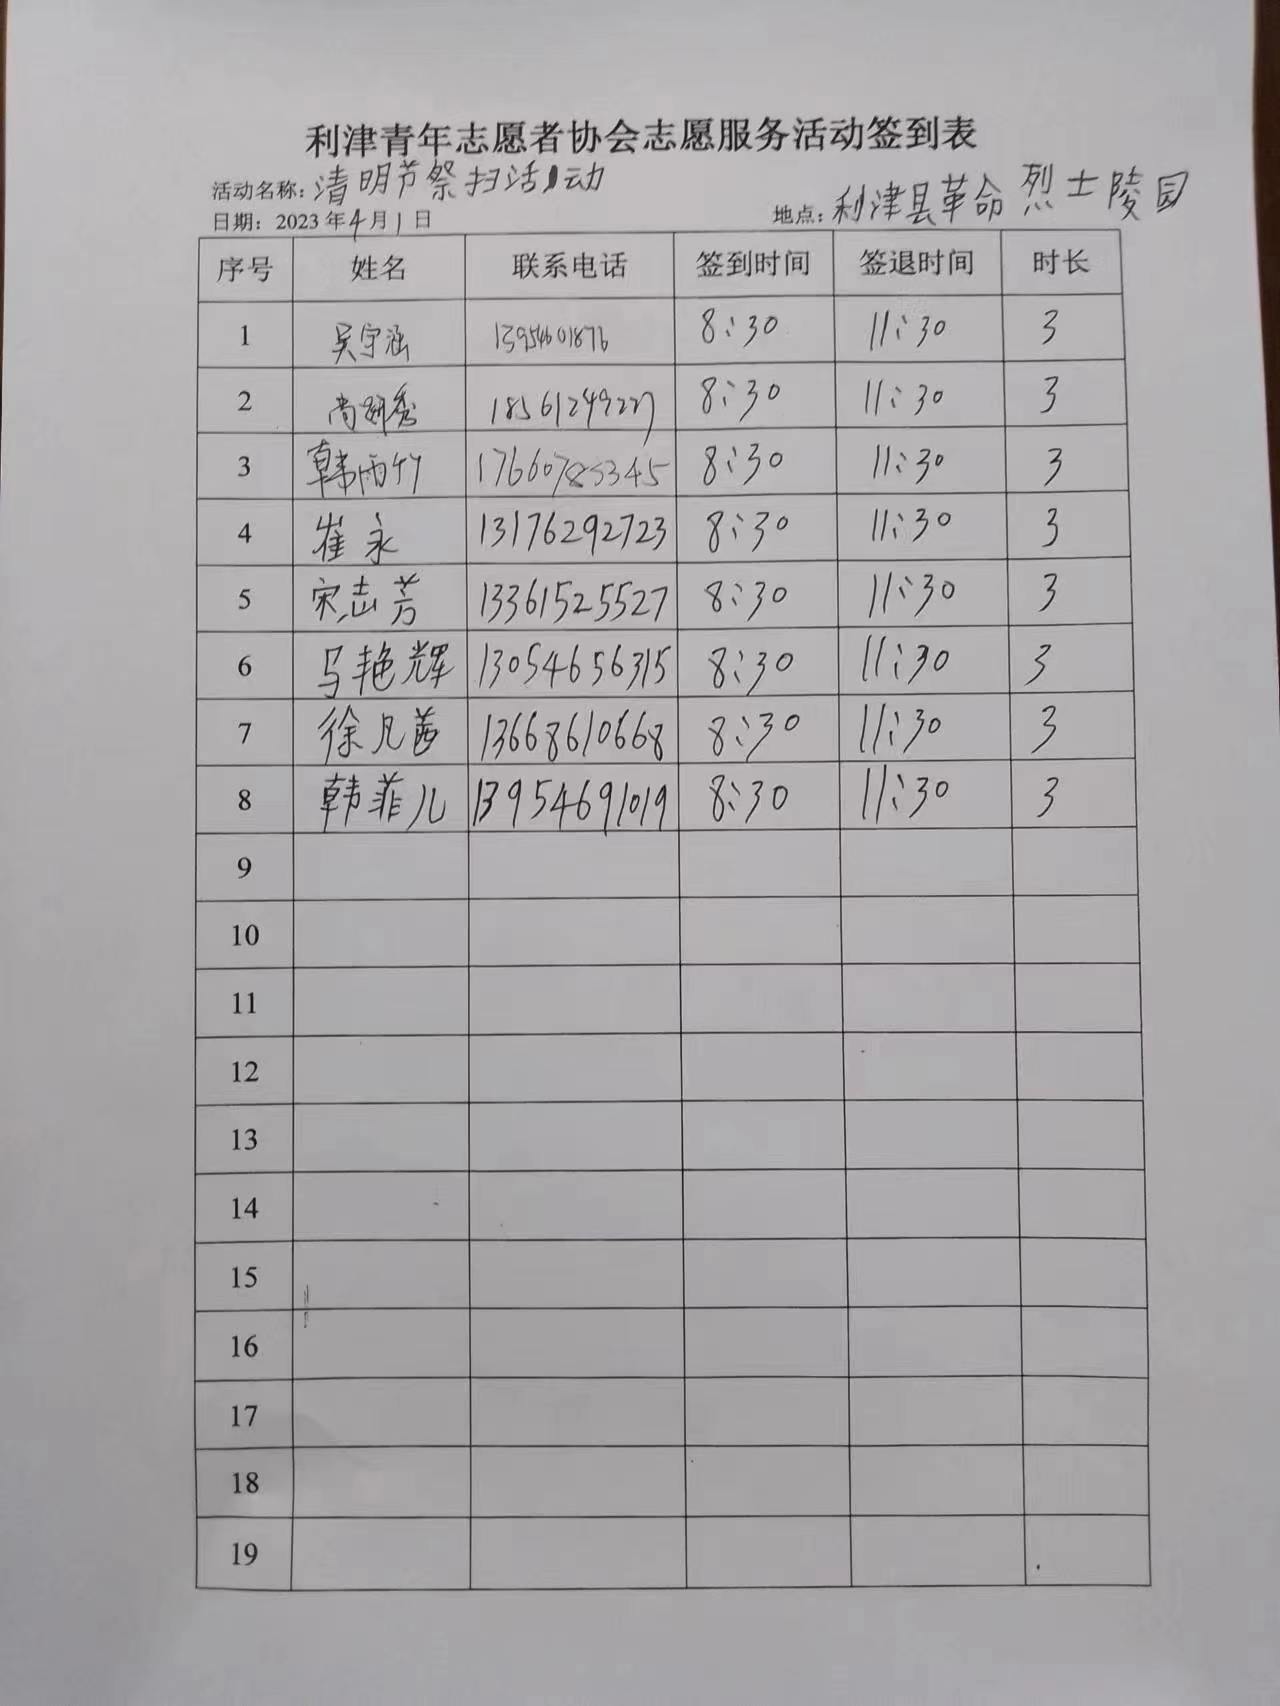 利津青年志愿者协会志愿服务活动签到表
活动名称：清明节祭扫活动
日期：2023年4月1日 地点：利津县革命烈士陵园
序号 姓名 联系电话 签到时间 签退时间 时长
1 吴宇涵 13954601876 8:30 11:30 3
2 尚妍秀 18561249227 8:30 11:30 3
3 韩雨竹 17660785345 8:30 11:30 3
4 崔永 13176292723 8:30 11:30 3
5 宋志芳 13361525527 8:30 11:30 3
6 马艳辉 13054656315 8:30 11:30 3
7 徐凡茜 13668610668 8:30 11:30 3
8 韩菲儿 13954691019 8:30 11:30 3
9
10
11
12
13
14
15
16
17
18
19